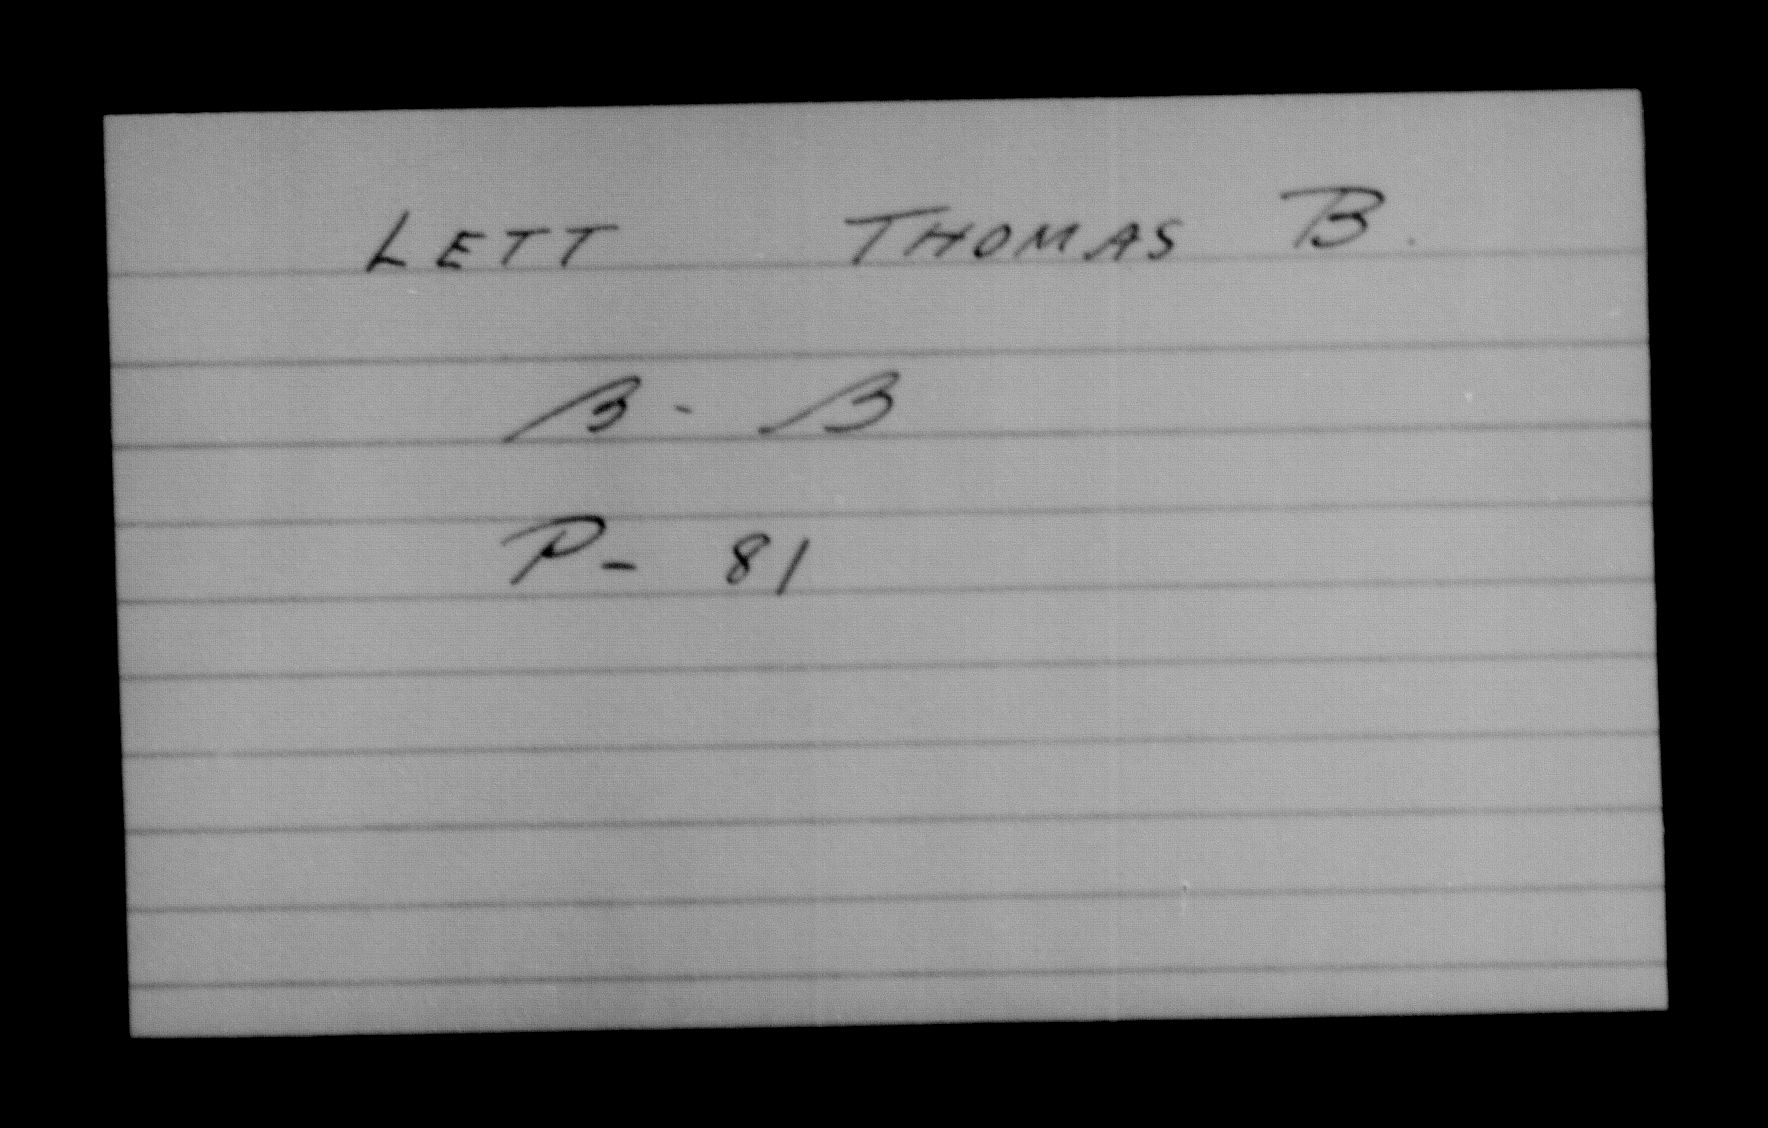 LETT THOMAS B.
B - B
P - 81